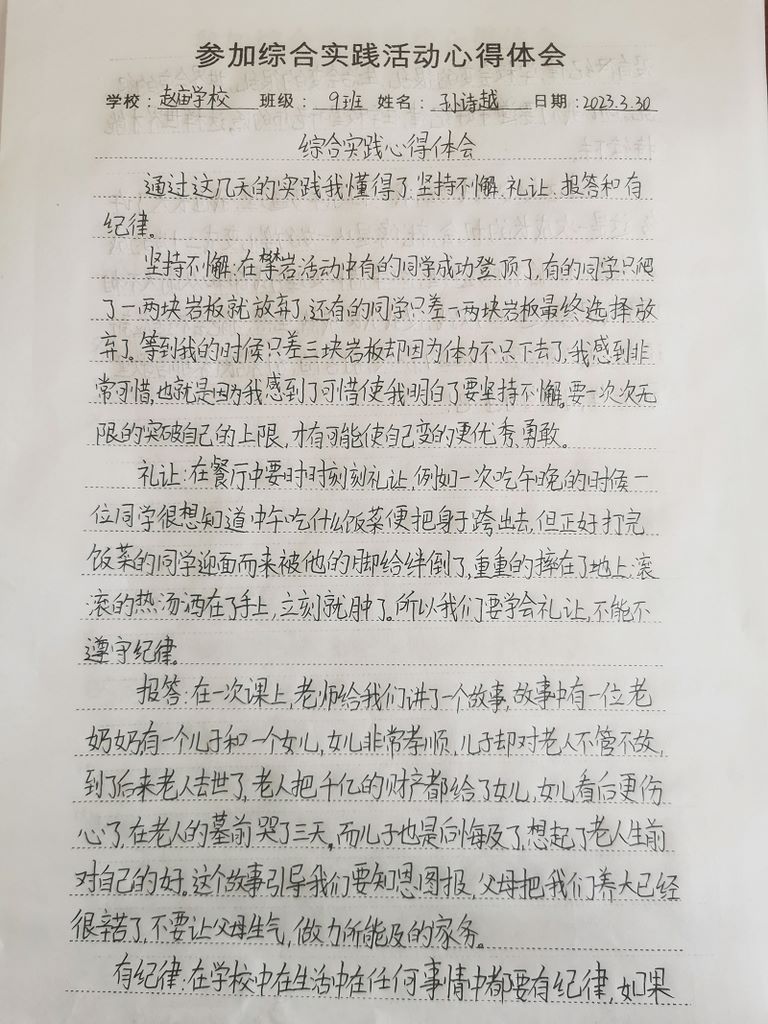 参加综合实践活动心得体会
学校：赵庙学校 班级：9班 姓名：孙诗越 日期：2023.3.30
综合实践心得体会
通过这几天的实践我懂得了坚持不懈、礼让、报答和有
纪律。
坚持不懈：在攀岩活动中有的同学成功登顶了，有的同学只爬
了一两块岩板就放弃了，还有的同学只差一两块岩板最终选择放
弃了。等到我的时候只差三块岩板却因为体力不只下去了，我感到非
常可惜，也就是因为我感到了可惜使我明白了要坚持不懈。要一次次无
限的突破自己的上限，才有可能使自己变的更优秀，勇敢。
礼让：在餐厅中要时时刻刻礼让，例如一次吃午晚的时候一
位同学很想知道中午吃什么饭菜便把身子跨出去，但正好打完
饭菜的同学迎面而来被他的脚给绊倒了，重重的摔在了地上，滚
滚的热汤洒在了手上，立刻就肿了。所以我们要学会礼让，不能不
遵守纪律。
报答：在一次课上，老师给我们讲了一个故事，故事中有一位老
奶奶有一个儿子和一个女儿，女儿非常孝顺，儿子却对老人不管不故，
到了后来老人去世了，老人把千亿的财产都给了女儿，女儿看后更伤
心了，在老人的墓前哭了三天，而儿子也是后悔及了，想起了老人生前
对自己的好。这个故事引导我们要知恩图报，父母把我们养大已经
很辛苦了，不要让父母生气，做力所能及的家务。
有纪律：在学校中在生活中在任何事情中都要有纪律，如果